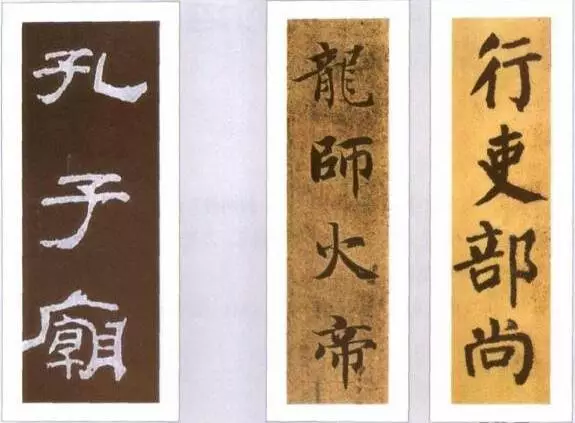 孔子廟
龍師火帝
行吏部尚